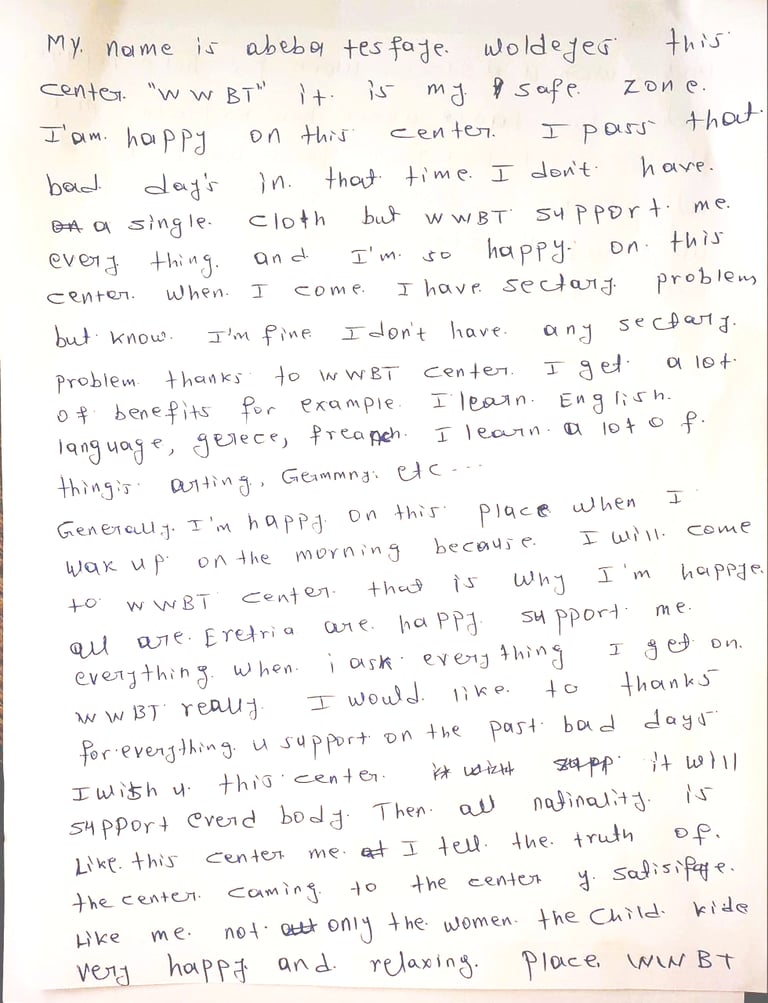 My. name is abeba tesfaye. woldeyes this
center. "W W BT" it. is my. safe. zone.
I'am. happy on this center. I pass that
bad. day's in. that time. I don't. have.
a single. cloth but WWBT. support. me.
every thing. and I'm. so happy. on. this
center. when. I come. I have. sectary. problem
but. know. I'm fine. I don't have. any sectary.
problem. thanks. to WWBT center. I get. a lot.
of. benefits for example. I learn. English.
language, gerece, freanch. I learn. a lot of.
thing's. arting, Germmny. etc ...
Generally. I'm happy. on this. place when I
wak up. on the morning because. I will. come
to WWBT center. that is why I'm happye.
all are. Eretria are. happy. support. me.
everything. when. i ask. everything I get on.
WWBT really. I would. like. to thanks
for.everything. u support on the past. bad days
I wish u. this center. it will
support everd body. Then. all natinality. is
Like. this center me. I tell. the. truth of.
the center. caming. to the center y. satisifaye.
Like me. not. only the. women. the child. kide
very happy. and. relaxing. place. WWBT